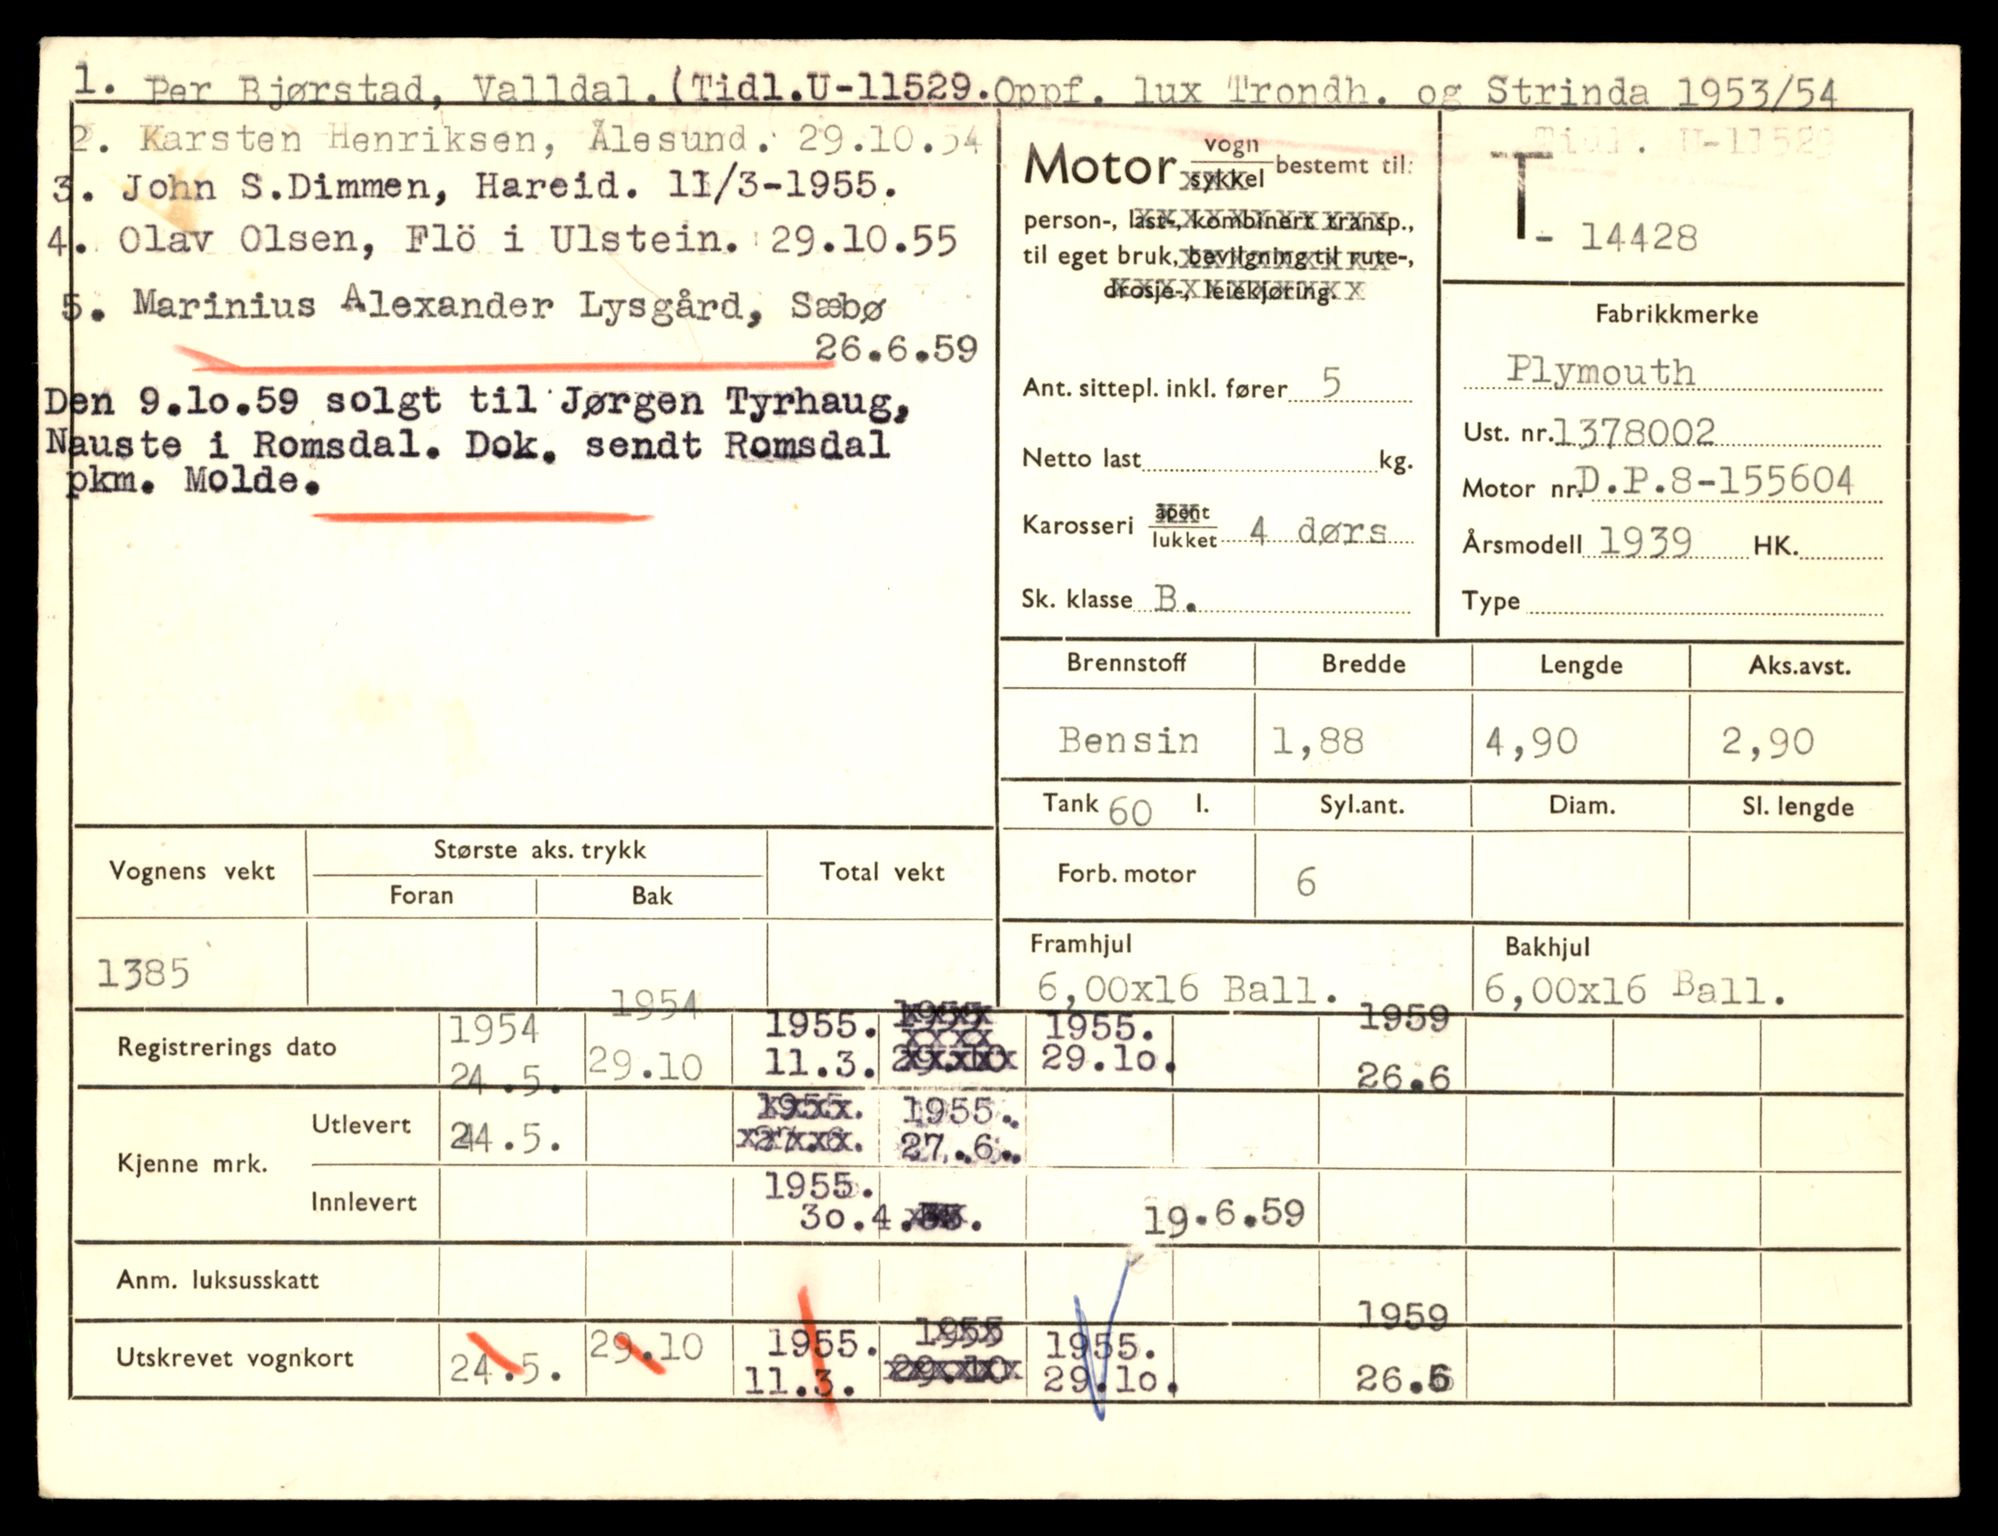 1. Per Bjørstad, Valldal.(Tidl.U-11529.Oppf. lux Trondh. og Strinda 1953/54
2. Karsten Henriksen, Ålesund. 29.10.54
3. John S.Dimmen, Hareid. 11/3-1955.
4. Olav Olsen, Flö i Ulstein. 29.10.55
5. Marinius Alexander Lysgård, Sæbø
26.6.59
Den 9.10.59 solgt til Jørgen Tyrhaug,
Nauste i Romsdal. Dok. sendt Romsdal
pkm. Molde.
Motor vogn sykkel bestemt til:
person-, last-, kombinert transp.,
til eget bruk, bevilgning til rute-,
drosje-, leiekjøring.
Ant. sittepl. inkl. fører 5
Netto last kg.
Karosseri åpent lukket 4 dørs
Sk. klasse B.
Tidl. U-11529
T- 14428
Fabrikkmerke
Plymouth
Ust. nr. 1378002
Motor nr. D.P.8-155604
Årsmodell 1939 HK.
Type
Brennstoff Bredde Lengde Aks.avst.
Bensin 1,88 4,90 2,90
Tank 60 l. Syl.ant. Diam. Sl. lengde
Forb. motor 6
Framhjul Bakhjul
6,00x16 Ball. 6,00x16 Ball.
Vognens vekt Største aks. trykk Total vekt
Foran Bak
1385
Registrerings dato 1954 1954 1955. 1955 1955. 1959
24.5. 29.10 11.3. 29.10 29.10. 26.6
Kjenne mrk. Utlevert 24.5. 1955. 1955.
27.6. 27.6.
Innlevert 1955.
30.4. 19.6.59
Anm. luksusskatt
Utskrevet vognkort 24.5. 29.10 1955. 1955 1955. 1959
11.3. 29.10 29.10. 26.6